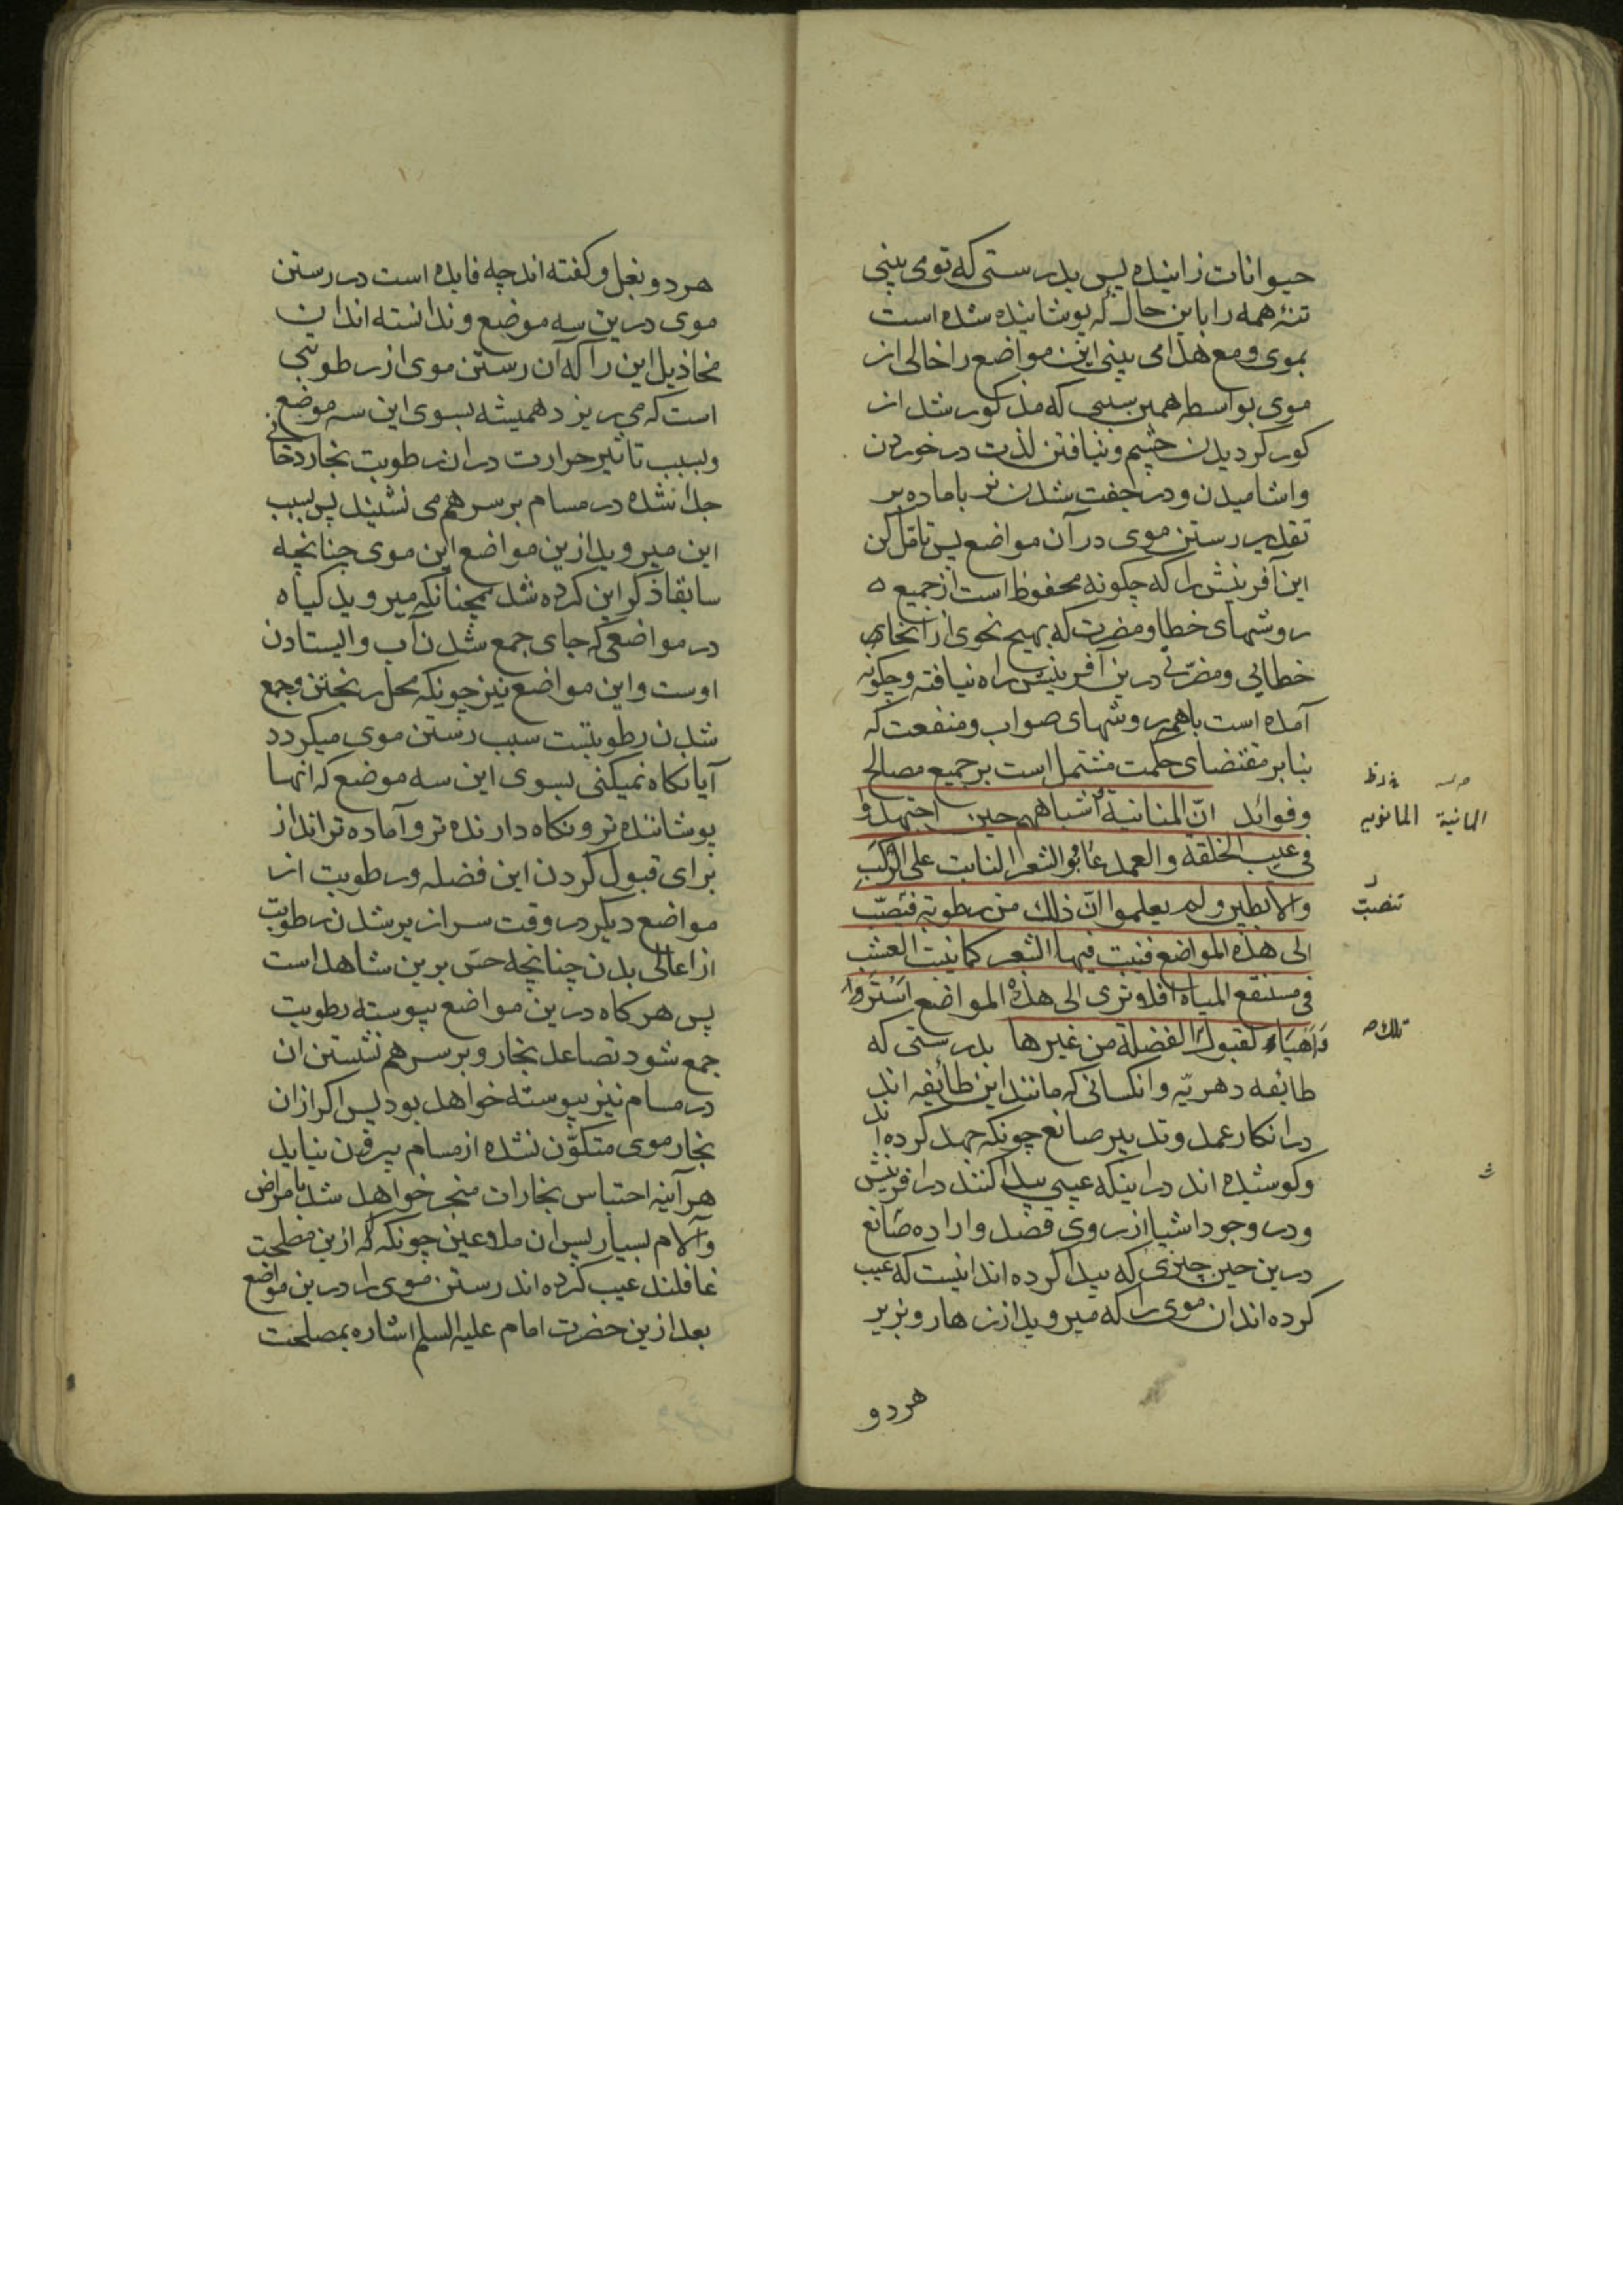 حیوانات زاینده پس بدرستی که تو می بینی
تنهٔ همه را باین حال که پوشانیده شده است
بموی و مع هذا می بینی این مواضع را خالی از
موی بواسطه همین سببی که مذکور شد از
کور کردیدن چشم و نیافتن لذت در خوردن
واشامیدن و در جفت شدن نر با ماده بر
تقدیر رستن موی در آن مواضع پس تامّل کن
این آفرینش را که چکونه محفوظ است از جمیع ه
روشهای خطا و مضرت که بهیچ نحوی از انحای
خطایی و مضرّتی درین آفرینش راه نیافته و چکونه
آمده است باهمه روشهای صواب و منفعت که
بنابر مقتضای حکمت مشتمل است بر جمیع مصالح
وفوائد انّ المنانیة و اشباههم حین اجتهدوا
فی عیب الخلقة والعمد عابوا الشعر النابت علی الرّکب
والابطین ولم یعلموا انّ ذلك من رطوبة فتنصبّ
الی هذه المواضع فینبت فیها الشعر کما ینبت العشب
فی مستنقع المیاه افلا تری الی هذه المواضع استر
واهیاء لقبول الفضلة من غیرها بدرستی که
طایفه دهریّه و انکسانی که مانند این طائفه اند
در انکار عمد و تدبیر صانع چونکه جهد کرده اند
وکوشیده اند در اینکه عیبی پیدا کنند در افرینش
ودر وجود اشیا از روی قصد و اراده صانع
درین حین چیزی که پیدا کرده اند اینست که عیب
کرده اند ان موی را که میروید از زهار و زیر
هر دو
المانیة المانویه
تنصبّ
تلك
هر دو بغل و کفته اند چه فایده است در رستن
موی درین سه موضع و ندانسته اند ان
مخاذیل این را که آن رستن موی از رطوبتی
است که می ریزد همیشه بسوی این سه موضع
وبسبب تاثیر حرارت در ان رطوبت بخار دخانی
جدا شده در مسام بر سر هم می نشیند پس بسبب
این میروید ازین مواضع این موی چنانچه
سابقا ذکر این کرده شد همچنانکه میروید کیاه
در مواضعی که جای جمع شدن آب و ایستادن
اوست و این مواضع نیز چونکه محل ریختن و جمع
شدن رطوبتست سبب رستن موی میکردد
آیا نکاه نمیکنی بسوی این سه موضع که انها
پوشاننده تر و نکاه دارنده تر و آماده تراند از
برای قبول کردن این فضله و رطوبت از
مواضع دیکر در وقت سرازیر شدن رطوبت
از اعالی بدن چنانچه حسّ برین شاهد است
پس هر کاه درین مواضع پیوسته رطوبت
جمع شود تصاعد بخار و بر سر هم نشستن ان
در مسام نیز پیوسته خواهد بود پس اکر ازان
بخار موی متکوّن نشده از مسام بیرون نیاید
هر آینه احتباس بخارات منجر خواهد شد بامراض
وآلام بسیار پس ان ملاعین چونکه که ازین مصلحت
غافلند عیب کرده اند رستن موی را درین مواضع
بعد ازین حضرت امام علیه السلم اشاره بمصلحت